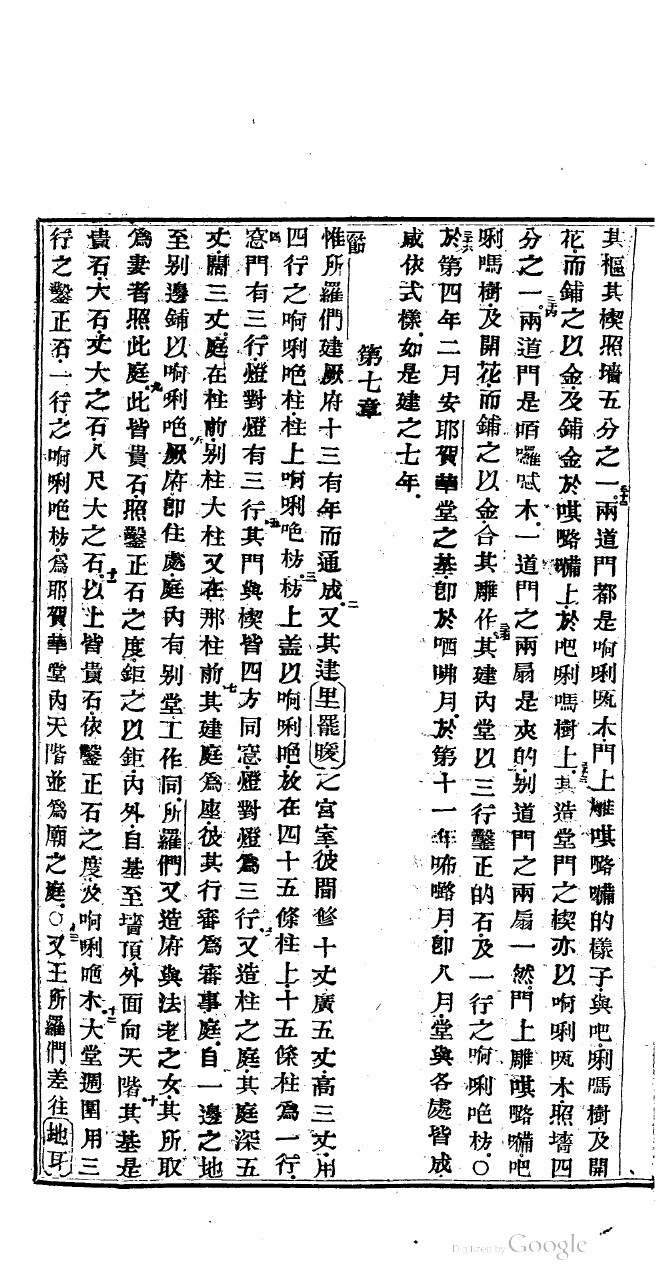 其樞其楔照墻五分之一。兩道門都是啊唎㕹木門上雕唭㗉囒的樣子與吧唎嗎樹及開
花而鋪之以金及鋪金於唭㗉囒上於吧唎嗎樹上其造堂門之楔亦以啊唎㕹木照墻四
分之一。兩道門是㗑囉㖤木一道門之兩扇是夾的別道門之兩扇一然門上雕唭㗉囒吧
唎嗎樹及開花而鋪之以金合其雕作其建內堂以三行鑿正的石及一行之啊唎吧枋○
於第四年二月安耶賀華堂之基卽於哂咈月於第十一年㖊㗉月卽八月堂與各處皆成
咸依式樣如是建之七年
第七章
節
惟所羅們建厥府十三有年而通成又其建里罷𡀾之宮室彼間修十丈廣五丈高三丈用
四行之啊唎吧柱柱上啊唎吧枋枋上盖以啊唎吧放在四十五條柱上十五條柱為一行
窓門有三行燈對燈有三行其門與楔皆四方同窓燈對燈為三行又造柱之庭其庭深五
丈闊三丈庭在柱前別柱大柱又在那柱前其建庭為座彼其行審為審事庭自一邊之地
至別邊鋪以啊唎吧厥府卽住處庭內有別堂工作同所羅們又造府與法老之女其所取
為妻者照此庭此皆貴石照鑿正石之度鉅之以鉅內外自基至墻頂外面向天階其基是
貴石大石丈大之石八尺大之石以上皆貴石依鑿正石之度及啊唎吧木大堂週圍用三
行之鑿正石一行之啊唎吧枋為耶賀華堂內天階並為廟之庭○又王所羅們差往地耳
Digitized by Google